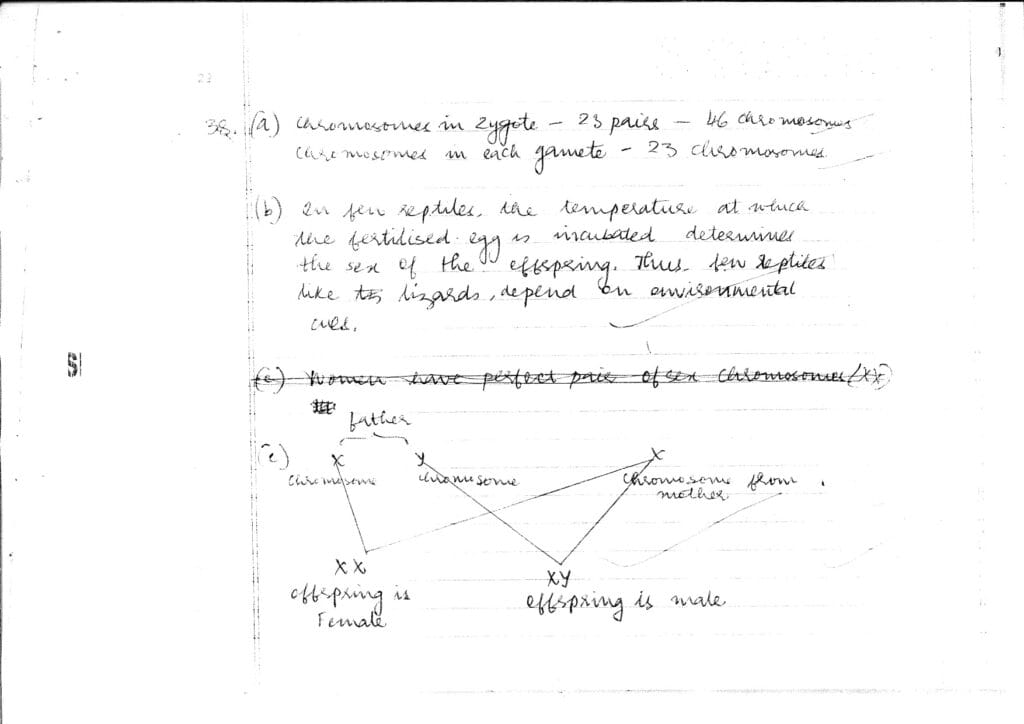 23
38. (a) Chromosomes in zygote - 23 pairs - 46 chromosomes
Chromosomes in each gamete - 23 chromosomes
(b) In few reptiles, the temperature at which
the fertilised egg is incubated determines
the sex of the offspring. Thus few reptiles
like lizards, depend on environmental
cues.
(c) Women have perfect pair of sex chromosomes (XX)
father
(c) X Y X
Chromosome chromosome Chromosome from
mother
XX XY
offspring is offspring is male
Female